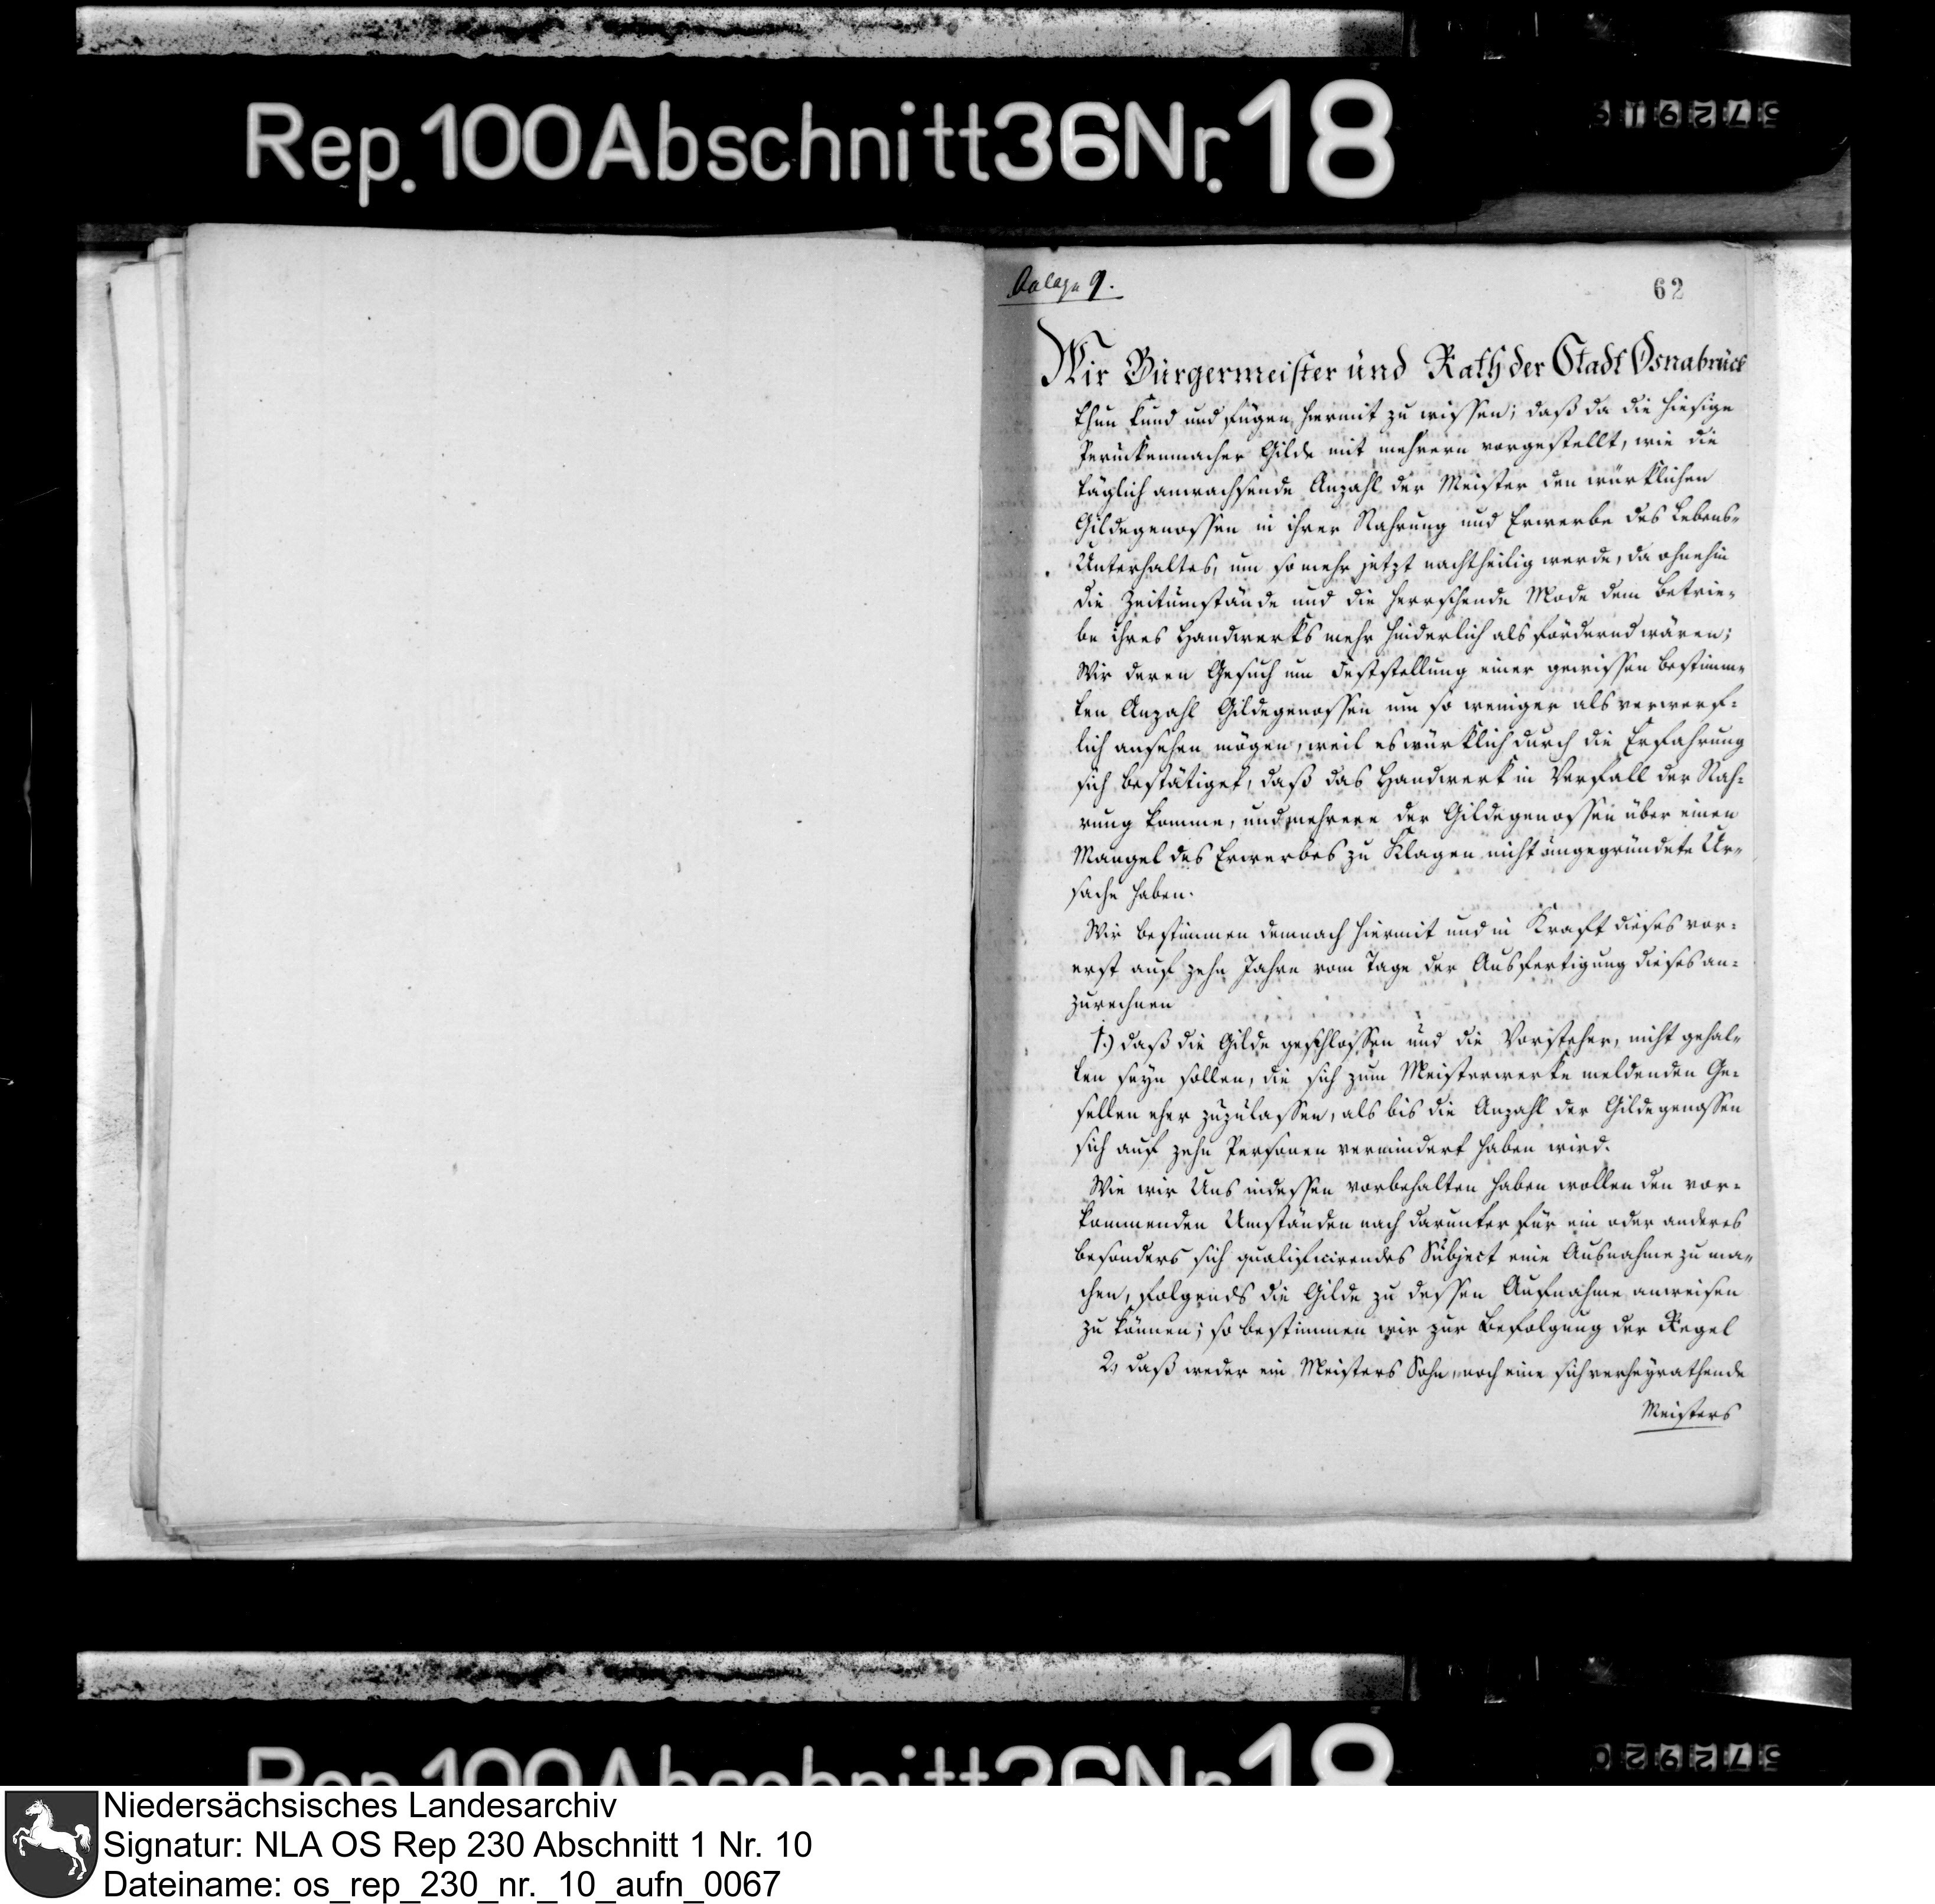 Rep. 100 Abschnitt 36 Nr. 18
572619
Anlage 9.
62
Wir Bürgermeister und Rath der Stadt Osnabrück
thun kund und fügen hiermit zu wissen; daß da die hiesige
Peruckenmacher Gilde mit mehrern vorgestellt, wie die
täglich anwachsende Anzahl der Meister den würklichen
Gildegenossen in ihrer Nahrung und Erwerbe des Lebens-
Unterhaltes, um so mehr jetzt nachtheilig werde, da ohnehin
die Zeitumstände und die herrschende Mode dem Betrie-
be ihres Handwerks mehr hinderlich als fördernd wären;
Wir deren Gesuch um Feststellung einer gewissen bestimm-
ten Anzahl Gildegenossen um so weniger als verwerf-
lich ansehen mögen, weil es würklich durch die Erfahrung
sich bestätiget, daß das Handwerk in Verfall der Nah-
rung komme, und mehrere der Gildegenossen über einen
Mangel des Erwerbes zu Klagen nicht ungegründete Ur-
sache haben.
Wir bestimmen demnach hiermit und in Kraft dieses vor-
erst auf zehn Jahre vom Tage der Ausfertigung dieses an-
zurechnen
1.) daß die Gilde geschlossen und die Vorsteher, nicht gehal-
ten seyn sollen, die sich zum Meisterwerke meldenden Ge-
sellen eher zuzulassen, als bis die Anzahl der Gildegenossen
sich auf zehn Personen vermindert haben wird.
Wie wir Uns indessen vorbehalten haben wollen den vor-
kommenden Umständen nach darunter für ein oder anderes
besonders sich qualificirendes Subject eine Ausnahme zu ma-
chen, folgends die Gilde zu dessen Aufnahme anweisen
zu können; so bestimmen wir zur Befolgung der Regel
2., daß weder ein Meisters Sohn, noch eine sich verheyrathende
Meisters
Rep. 100 Abschnitt 36 Nr. 18
572620
Niedersächsisches Landesarchiv
Signatur: NLA OS Rep 230 Abschnitt 1 Nr. 10
Dateiname: os_rep_230_nr._10_aufn_0067